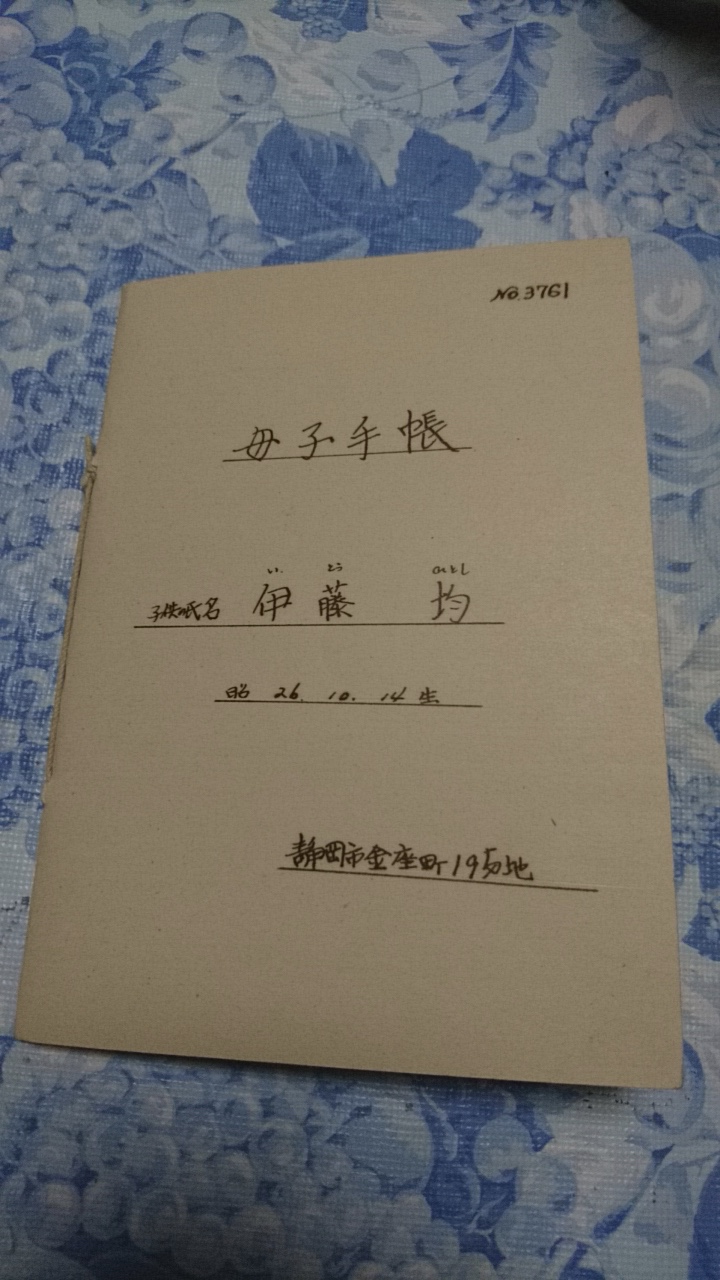 No.3761
母子手帳
い とう ひとし
子供氏名 伊藤 均
昭 26. 10. 14 生
静岡市金座町19番地